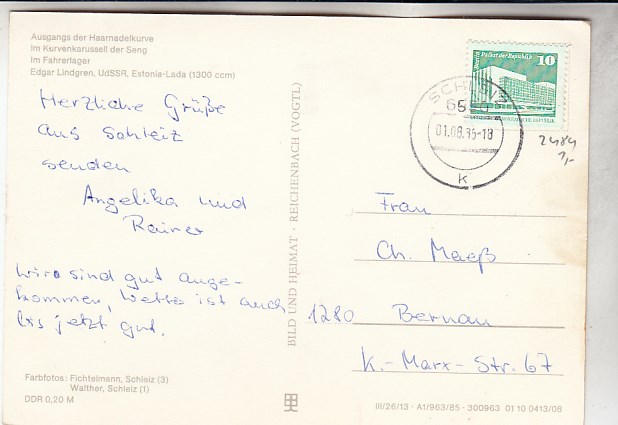 Ausgangs der Haarnadelkurve
Im Kurvenkarussell der Seng
Im Fahrerlager
Edgar Lindgren, UdSSR, Estonia-Lada (1300 ccm)
Herzliche Grüße
aus Schleiz
senden
Angelika und
Rainer
Wir sind gut ange-
kommen, Wetter ist auch
bis jetzt gut.
Farbfotos: Fichtelmann, Schleiz (3)
Walther, Schleiz (1)
DDR 0,20 M
BILD UND HEIMAT · REICHENBACH (VOGTL)
Palast der Republik
10
SCHLEIZ
01.08.
-18
k
2484
1,-
Frau
Ch. Maeß
1280 Bernau
K.-Marx-Str. 67
III/26/13 · A1/963/85 · 300963 01 10 0413/08